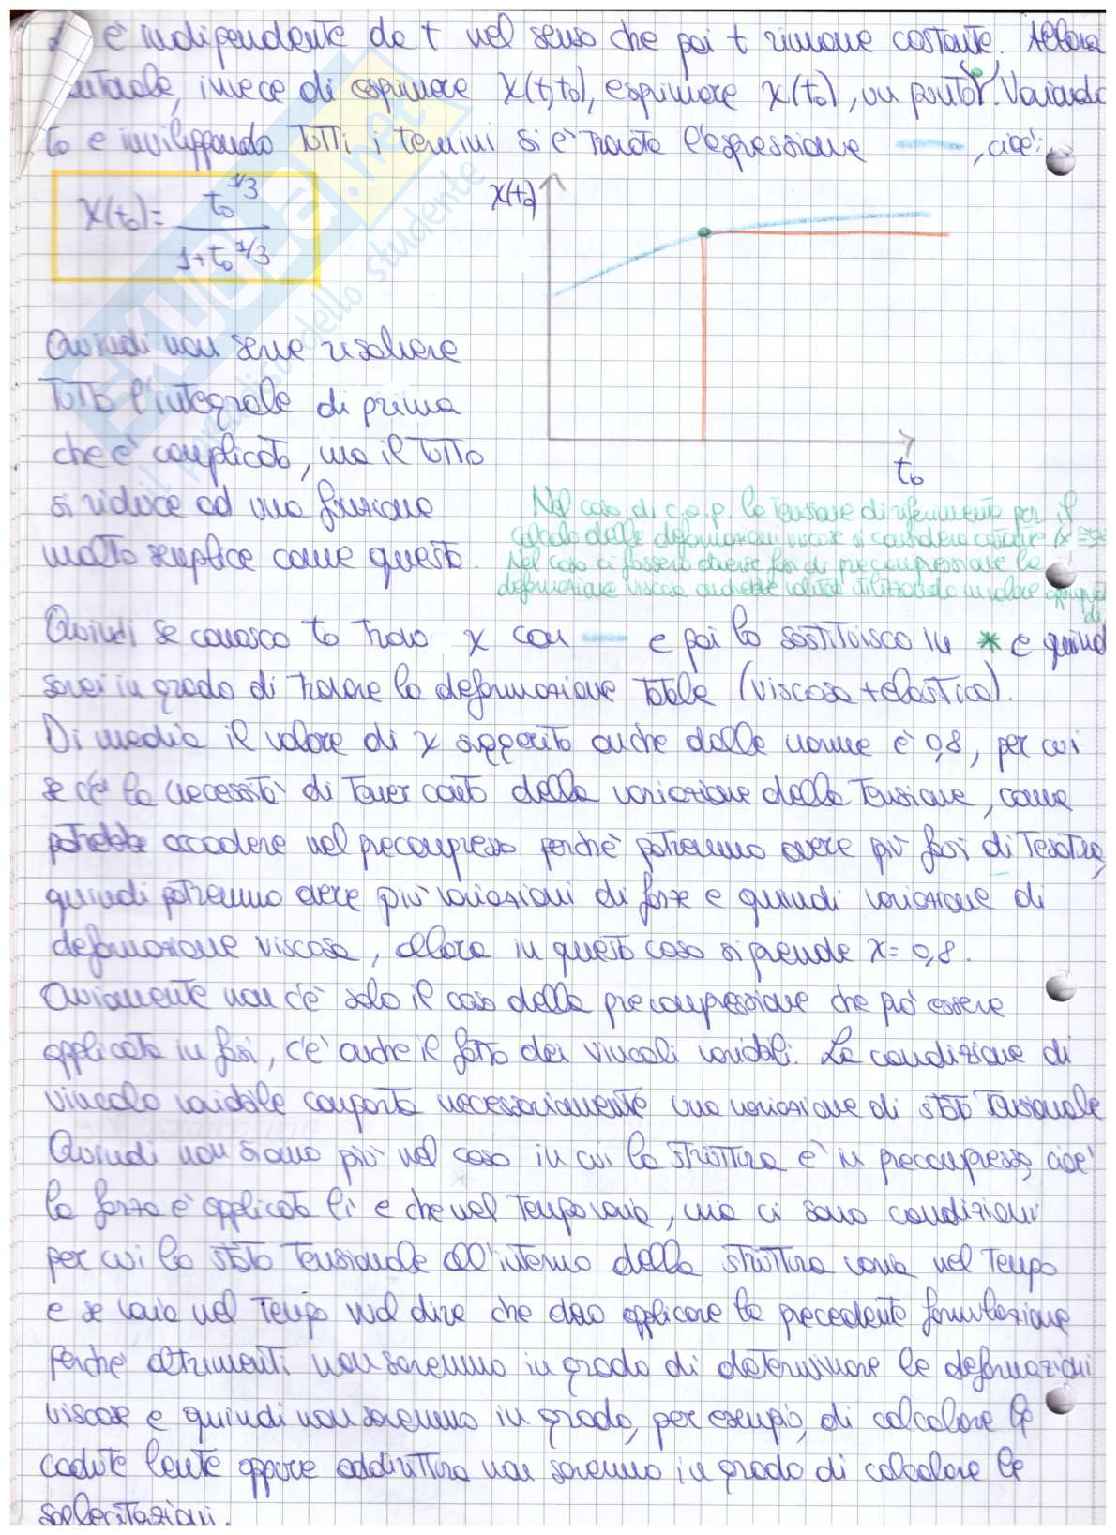 è indipendente da t nel senso che poi t rimane costante. Allora
, invece di esprimere χ(t,t₀), esprimere χ(t₀), un punto. Variando
t₀ e inviluppando tutti i termini si è trovata l'espressione , cioè:
χ(t₀) = t₀^1/3 / 1+t₀^1/3
χ(t₀)
t₀
Quindi non serve risolvere
tutto l'integrale di prima
che è complicato, ma il tutto
si riduce ad una funzione
molto semplice come questa.
Nel caso di c.a.p. la tensione di riferimento per il
calcolo delle deformazioni viscose si considera costante
Nel caso ci fossero diverse fasi di precompressione la
deformazione viscosa andrebbe valutata utilizzando un valore
di
Quindi se conosco t₀ trovo χ con e poi lo sostituisco in * e quindi
sarei in grado di trovare la deformazione totale (viscosa + elastica).
Di media il valore di χ suggerito anche dalle norme è 0,8, per cui
se c'è la necessità di tener conto della variazione della tensione, come
potrebbe accadere nel precompresso perché potremmo avere più fasi di tesatura,
quindi potremmo avere più variazioni di forze e quindi variazione di
deformazione viscosa, allora in questo caso si prende χ = 0,8.
Ovviamente non c'è solo il caso della precompressione che può essere
applicata in fasi, c'è anche il fatto dei vincoli variabili. La condizione di
vincolo variabile comporta necessariamente una variazione di stato tensionale
Quindi non siamo più nel caso in cui la struttura è in precompresso, cioè
la forza è applicata lì e che nel tempo varia, ma ci sono condizioni
per cui lo stato tensionale all'interno della struttura varia nel tempo
e se varia nel tempo vuol dire che devo applicare la precedente formulazione
perché altrimenti non saremmo in grado di determinare le deformazioni
viscose e quindi non saremmo in grado, per esempio, di calcolare le
cadute lente oppure addirittura non saremmo in grado di calcolare le
sollecitazioni.